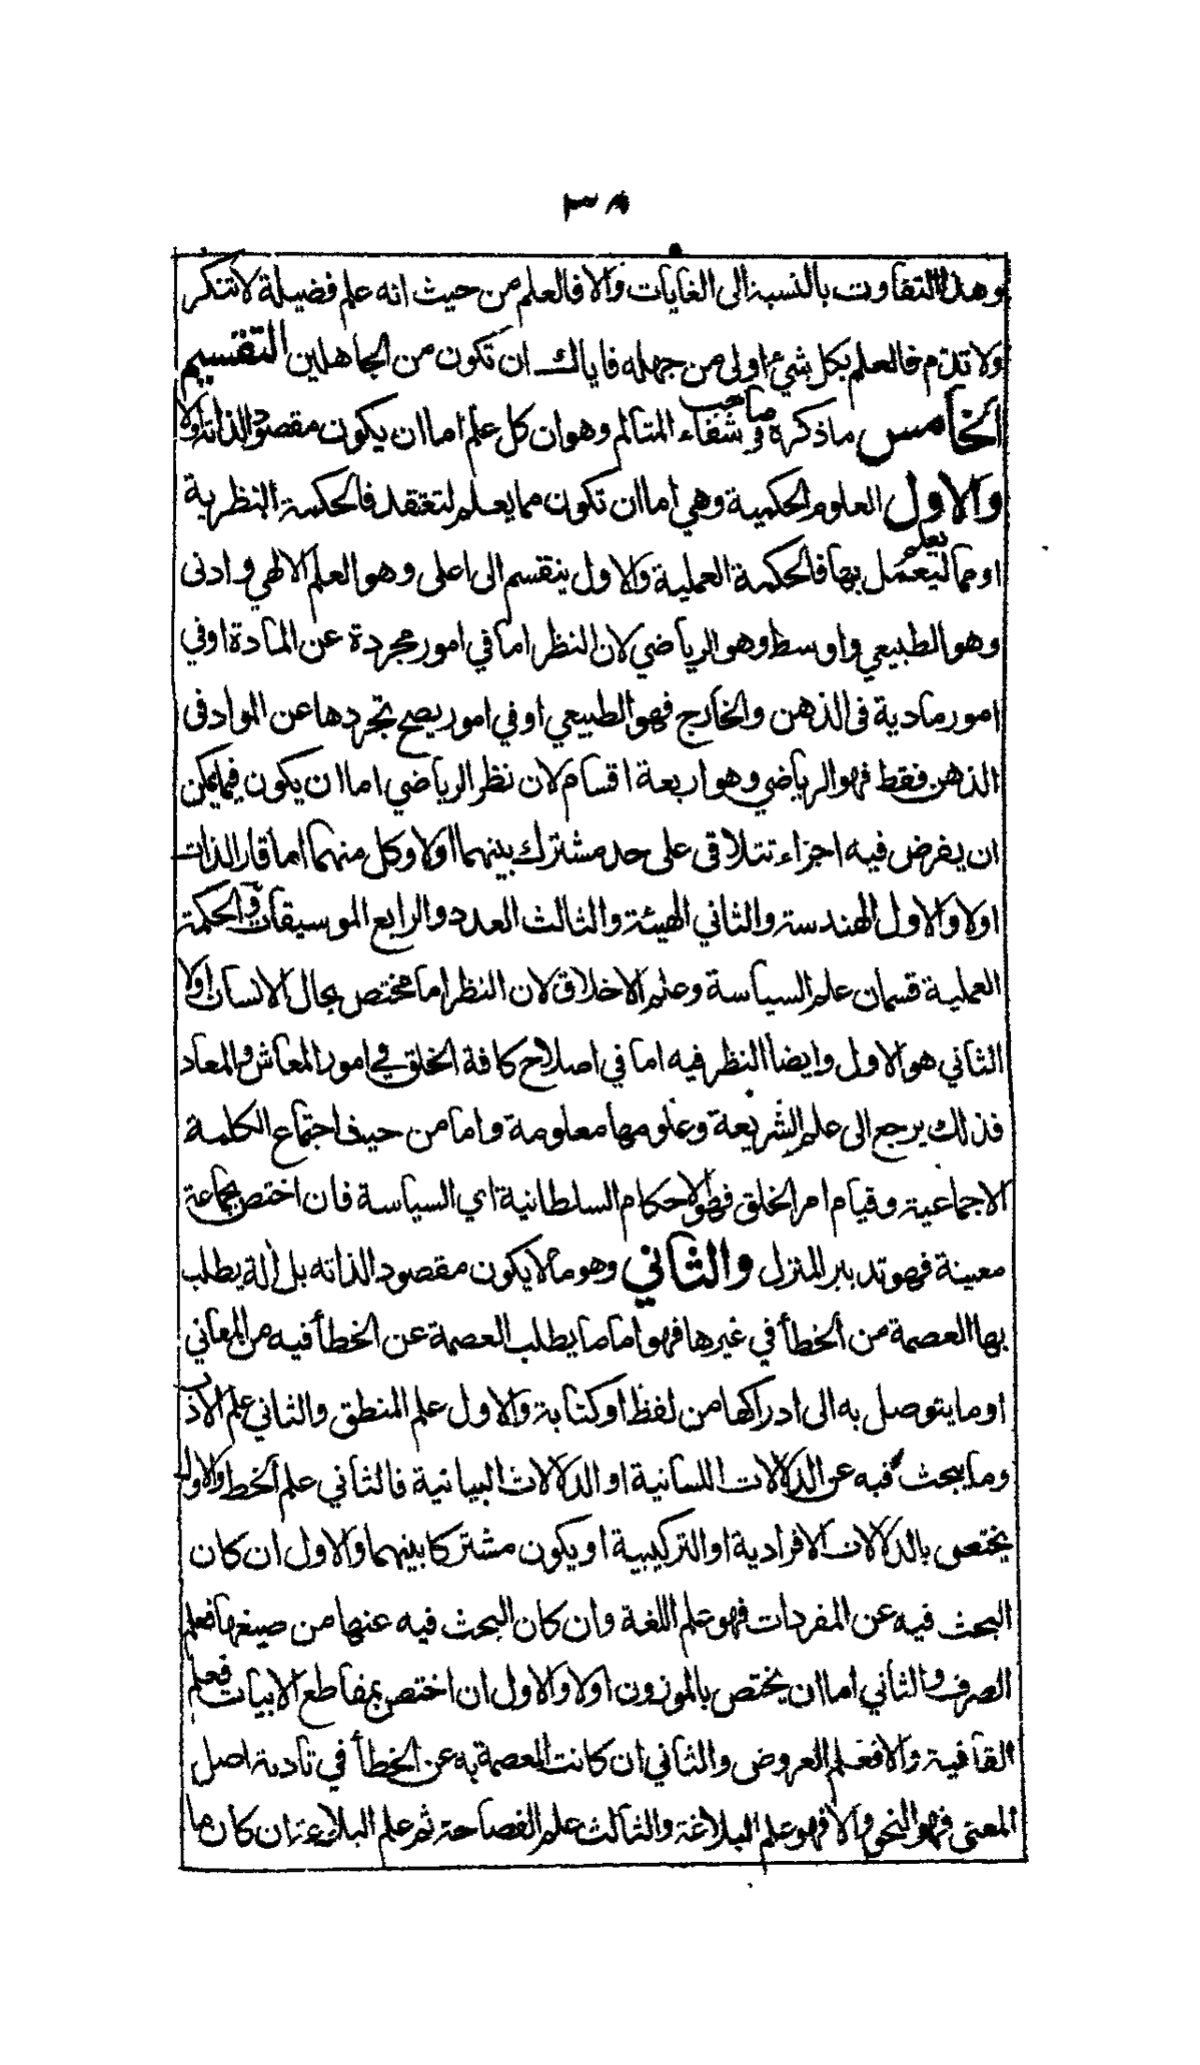 ٣٨
وهذا التفاوت بالنسبة الى الغايات والا فالعلم من حيث انه علم فضيلة لا تنكر
ولا تذم فالعلم بكل شيء اولى من جهله فاياك ان تكون من الجاهلين التقسيم
الخامس ما ذكره صاحب في شفاء المتالم وهو ان كل علم اما ان يكون مقصودا لذاته اولا
والاول العلوم الحكمية وهي اما ان تكون مما يعلم لتعتقد فالحكمة النظرية
او مما يعلم ليعمل بها فالحكمة العملية والاول ينقسم الى اعلى وهو العلم الالهي وادنى
وهو الطبيعي واوسط وهو الرياضي لان النظر اما في امور مجردة عن المادة او في
امور مادية في الذهن والخارج فهو الطبيعي او في امور يصح تجردها عن المواد في
الذهن فقط فهو الرياضي وهو اربعة اقسام لان نظر الرياضي اما ان يكون فيما يمكن
ان يفرض فيه اجزاء تتلاقى على حد مشترك بينهما اولا وكل منهما اما قار الذات
اولا والاول الهندسة والثاني الهيئة والثالث العدد والرابع الموسيقات وفي الحكمة
العملية قسمان علم السياسة وعلم الاخلاق لان النظر اما مختص بحال الانسان اولا
الثاني هو الاول وايضا النظر فيه اما في اصلاح كافة الخلق في امور المعاش والمعاد
فذلك يرجع الى علم الشريعة وعلومها معلومة واما من حيث اجتماع الكلمة
الاجماعية وقيام امر الخلق فهو الاحكام السلطانية اي السياسة فان اختص بجماعة
معينة فهو تدبير المنزل والثاني وهو ما لا يكون مقصودا لذاته بل آلة يطلب
بها العصمة من الخطأ في غيرها فهو اما ما يطلب العصمة عن الخطأ فيه من المعاني
او ما يتوصل به الى ادراكها من لفظ او كتابة والاول علم المنطق والثاني علم الادب
وما يبحث فيه عن الدلالات اللسانية او الدلالات البيانية فالثاني علم الخط والاول
يختص بالدلالات الافرادية او التركيبية او يكون مشتركا بينهما والاول ان كان
البحث فيه عن المفردات فهو علم اللغة وان كان البحث فيه عنها من صيغها فعلم
الصرف والثاني اما ان يختص بالموزون اولا والاول ان اختص بمقاطع الابيات فعلم
القافية والا فعلم العروض والثاني ان كانت العصمة به عن الخطأ في تادية اصل
المعنى فهو النحو والا فهو علم البلاغة والثالث علم الفصاحة ثم علم البلاغة ان كان ما